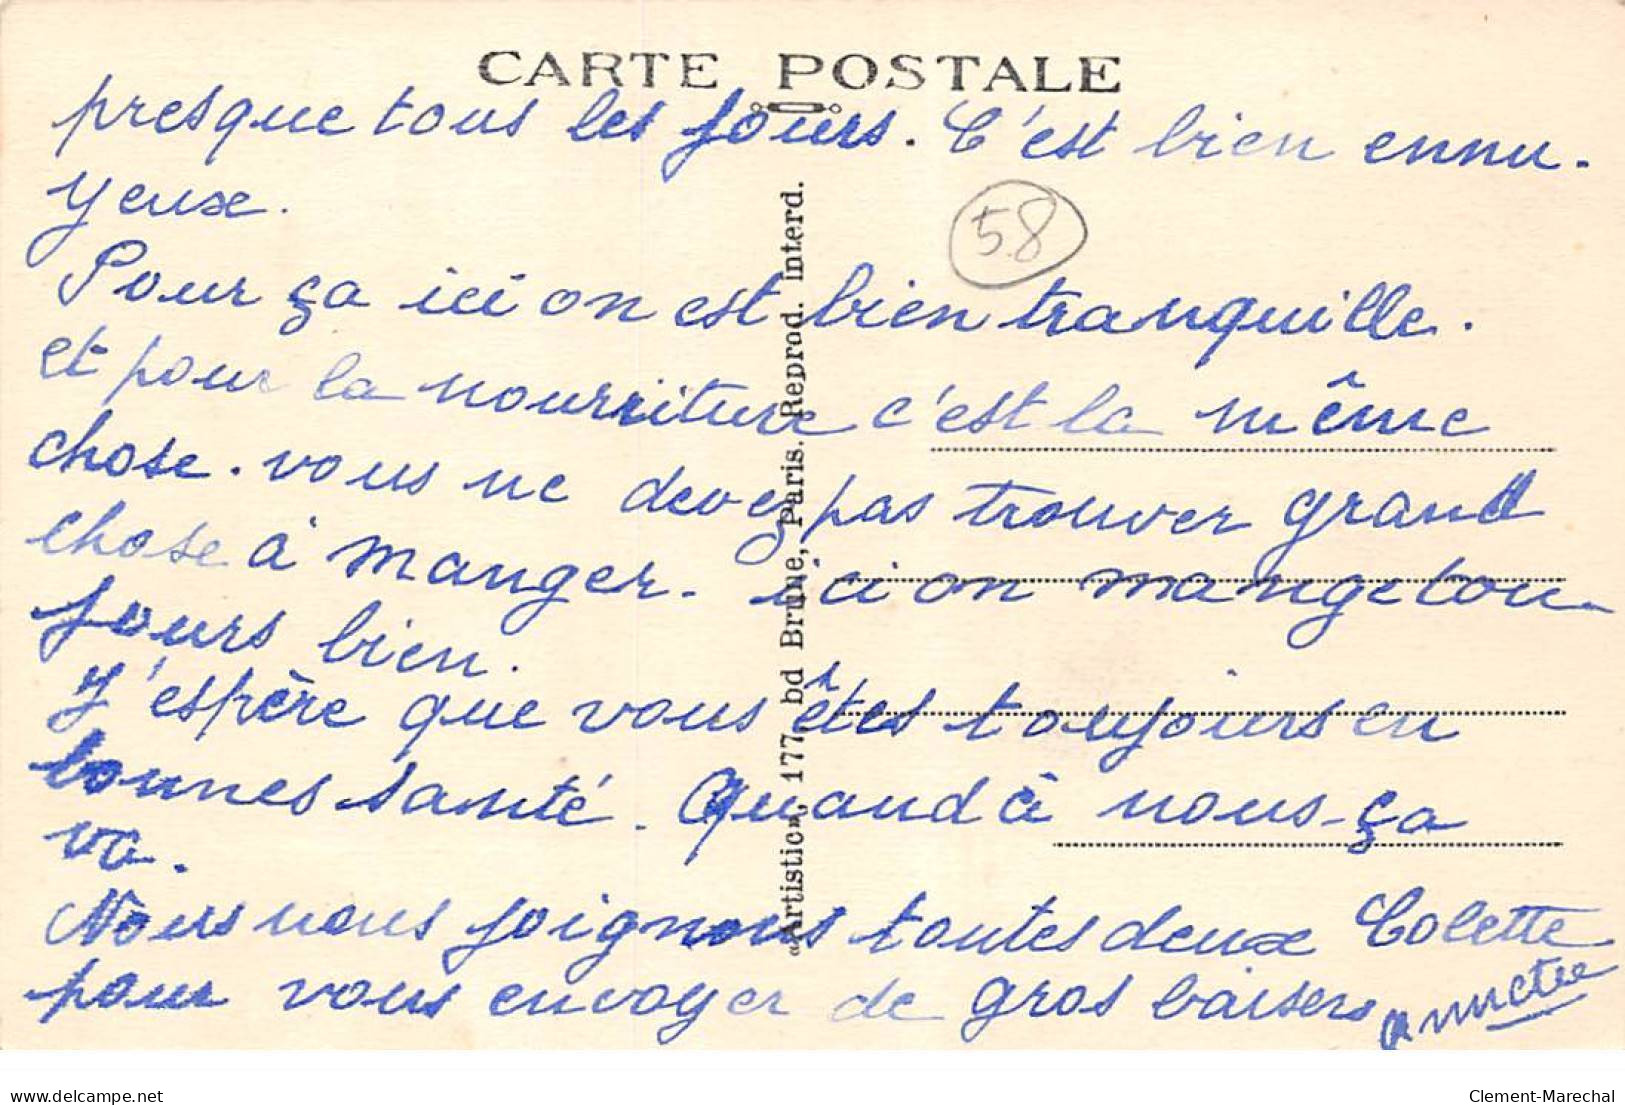 CARTE POSTALE
presque tous les jours. C'est bien ennu-
yeuse.
58
Pour ça ici on est bien tranquille.
et pour la nourriture c'est la même
chose. vous ne devez pas trouver grand
chose à manger. ici on mange tou-
jours bien.
J'espère que vous êtes toujours en
bonnes santé. Quand à nous-ça
va.
Nous nous joignons toutes deux Colette
pour vous envoyer de gros baisers
«Artistic», 177, bd Brune, Paris. Reprod. interd.
delcampe.net
Clement-Marechal